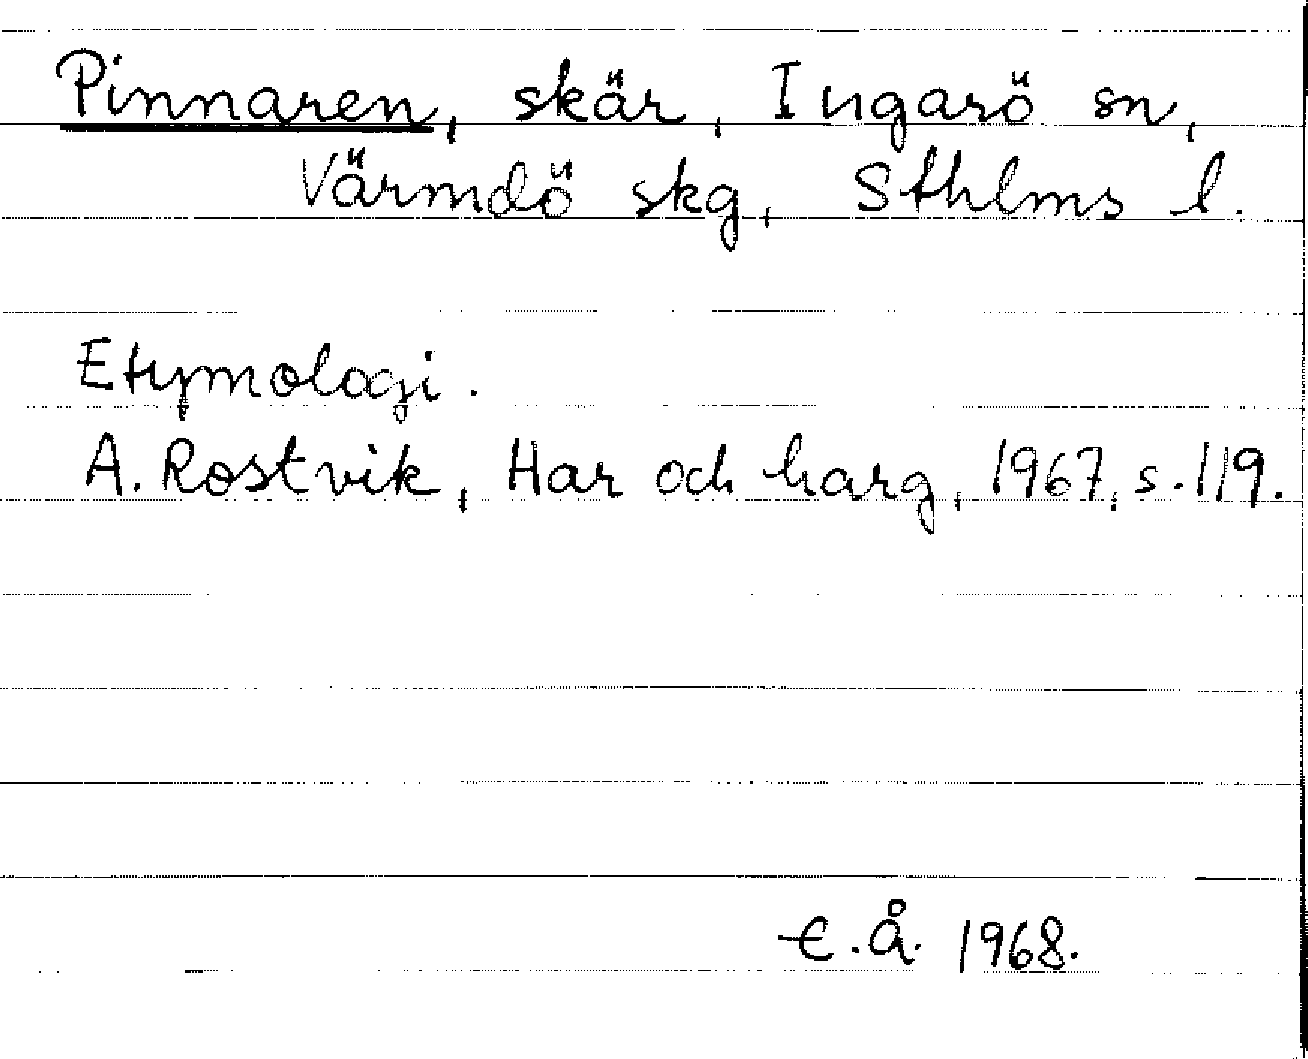 Pinnaren, skär, Ingarö sn,
Värmdö skg, Sthlms l.
Etymologi.
A. Rostvik, Har och harg, 1967, s. 119.
E.Å. 1968.